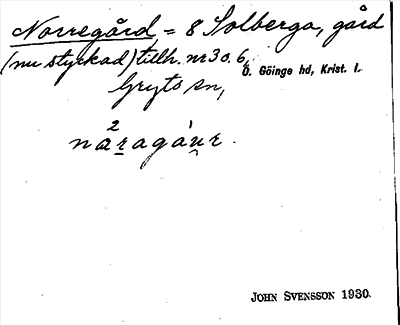 Norregård = 8 Solberga, gård
(nu styckad) tillh. nr 30.6,
Ö. Göinge hd, Krist. l.
Gryts sn,
JOHN SVENSSON 1930.